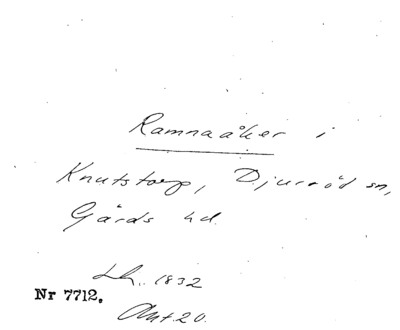 Ramnaåker i
Knutstorp, Djurröd sn,
Gärds hd.
Lh. 1832
Nr 7712.
Akt 20.